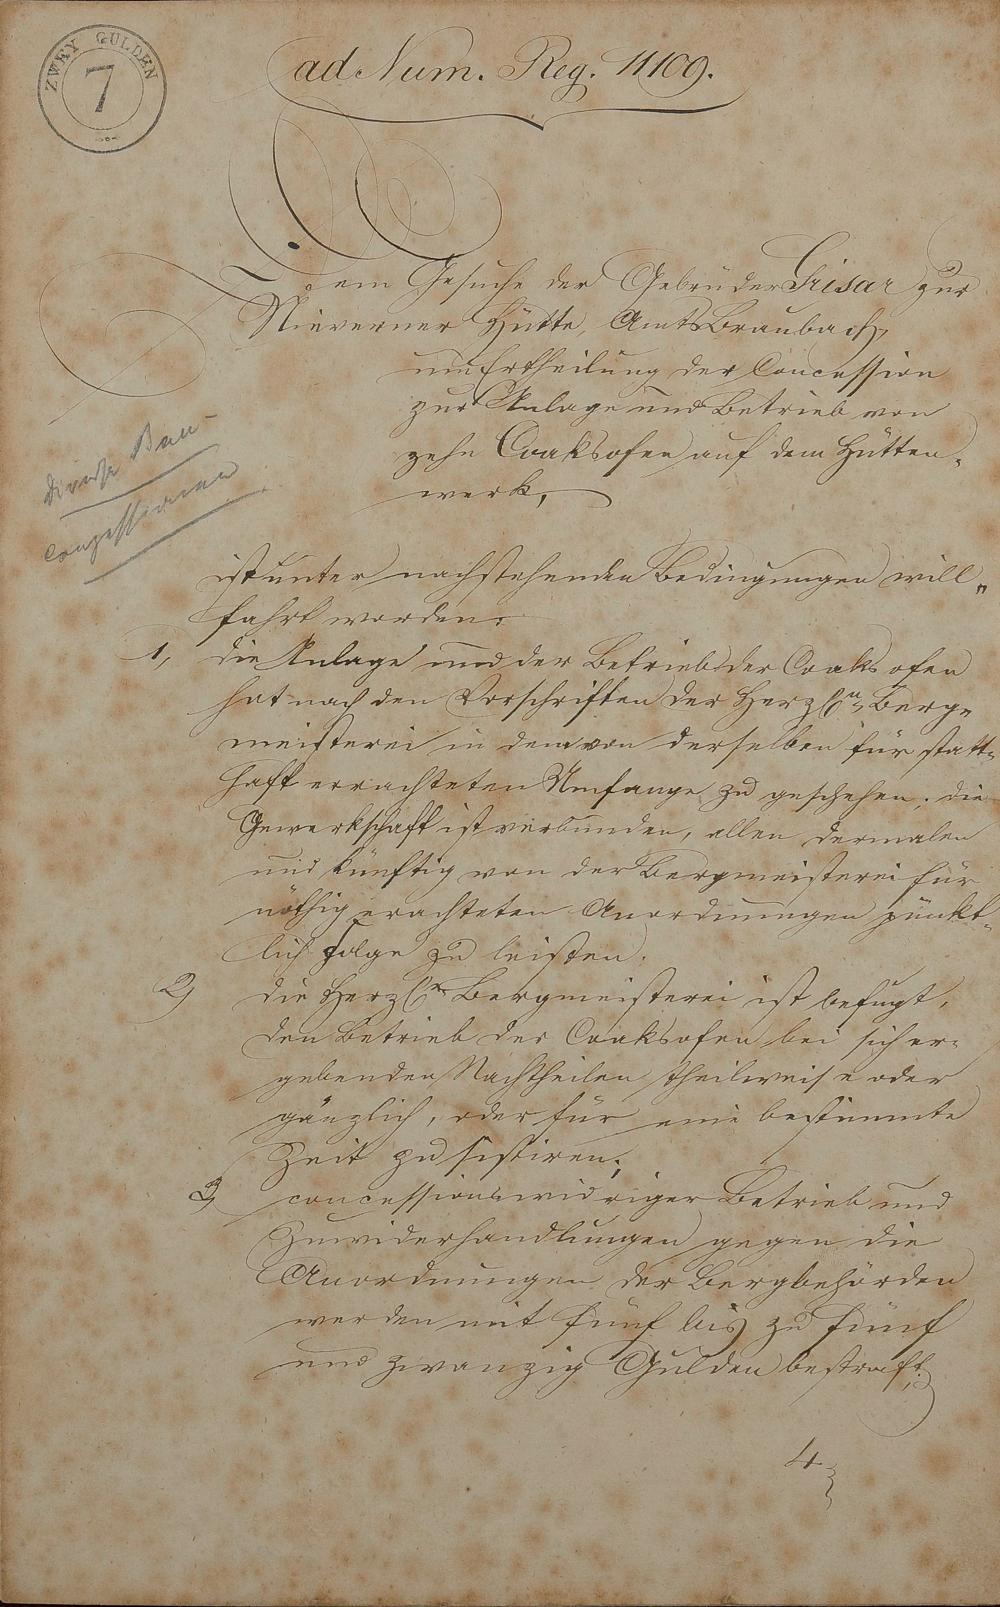 ZWEY GULDEN
7
ad Num. Reg. 11109.
Dem Gesuche der Gebrüder Grisar zur
Nieverner Hütte, Amts Braubach,
um Ertheilung der Concession
zur Anlage und Betrieb von
zehn Coaksofen auf dem Hütten-
werk,
diverse Bau
Conzessionen
ist unter nachstehenden Bedingungen will-
fahrt worden:
1, die Anlage und der Betrieb der Coaksofen
hat nach den Vorschriften der Herzln Berg-
meisterei in dem von derselben für statt-
haft errachteten Umfange zu geschehen; die
Gewerkschaft ist verbunden, allen dermalen
und künftig von der Bergmeisterei für
nöthig erachteten Anordnungen pünkt-
lich Folge zu leisten.
2, die Herzl. Bergmeisterei ist befugt,
den Betrieb der Coaksofen bei sich er-
gebenden Nachtheilen theilweise oder
gänzlich, oder für eine bestimmte
Zeit zu sistiren;
3, concessionswidriger Betrieb und
Zuwiderhandlungen gegen die
Anordnungen der Bergbehörden
werden mit fünf bis zu fünf
und zwanzig Gulden bestraft;
4